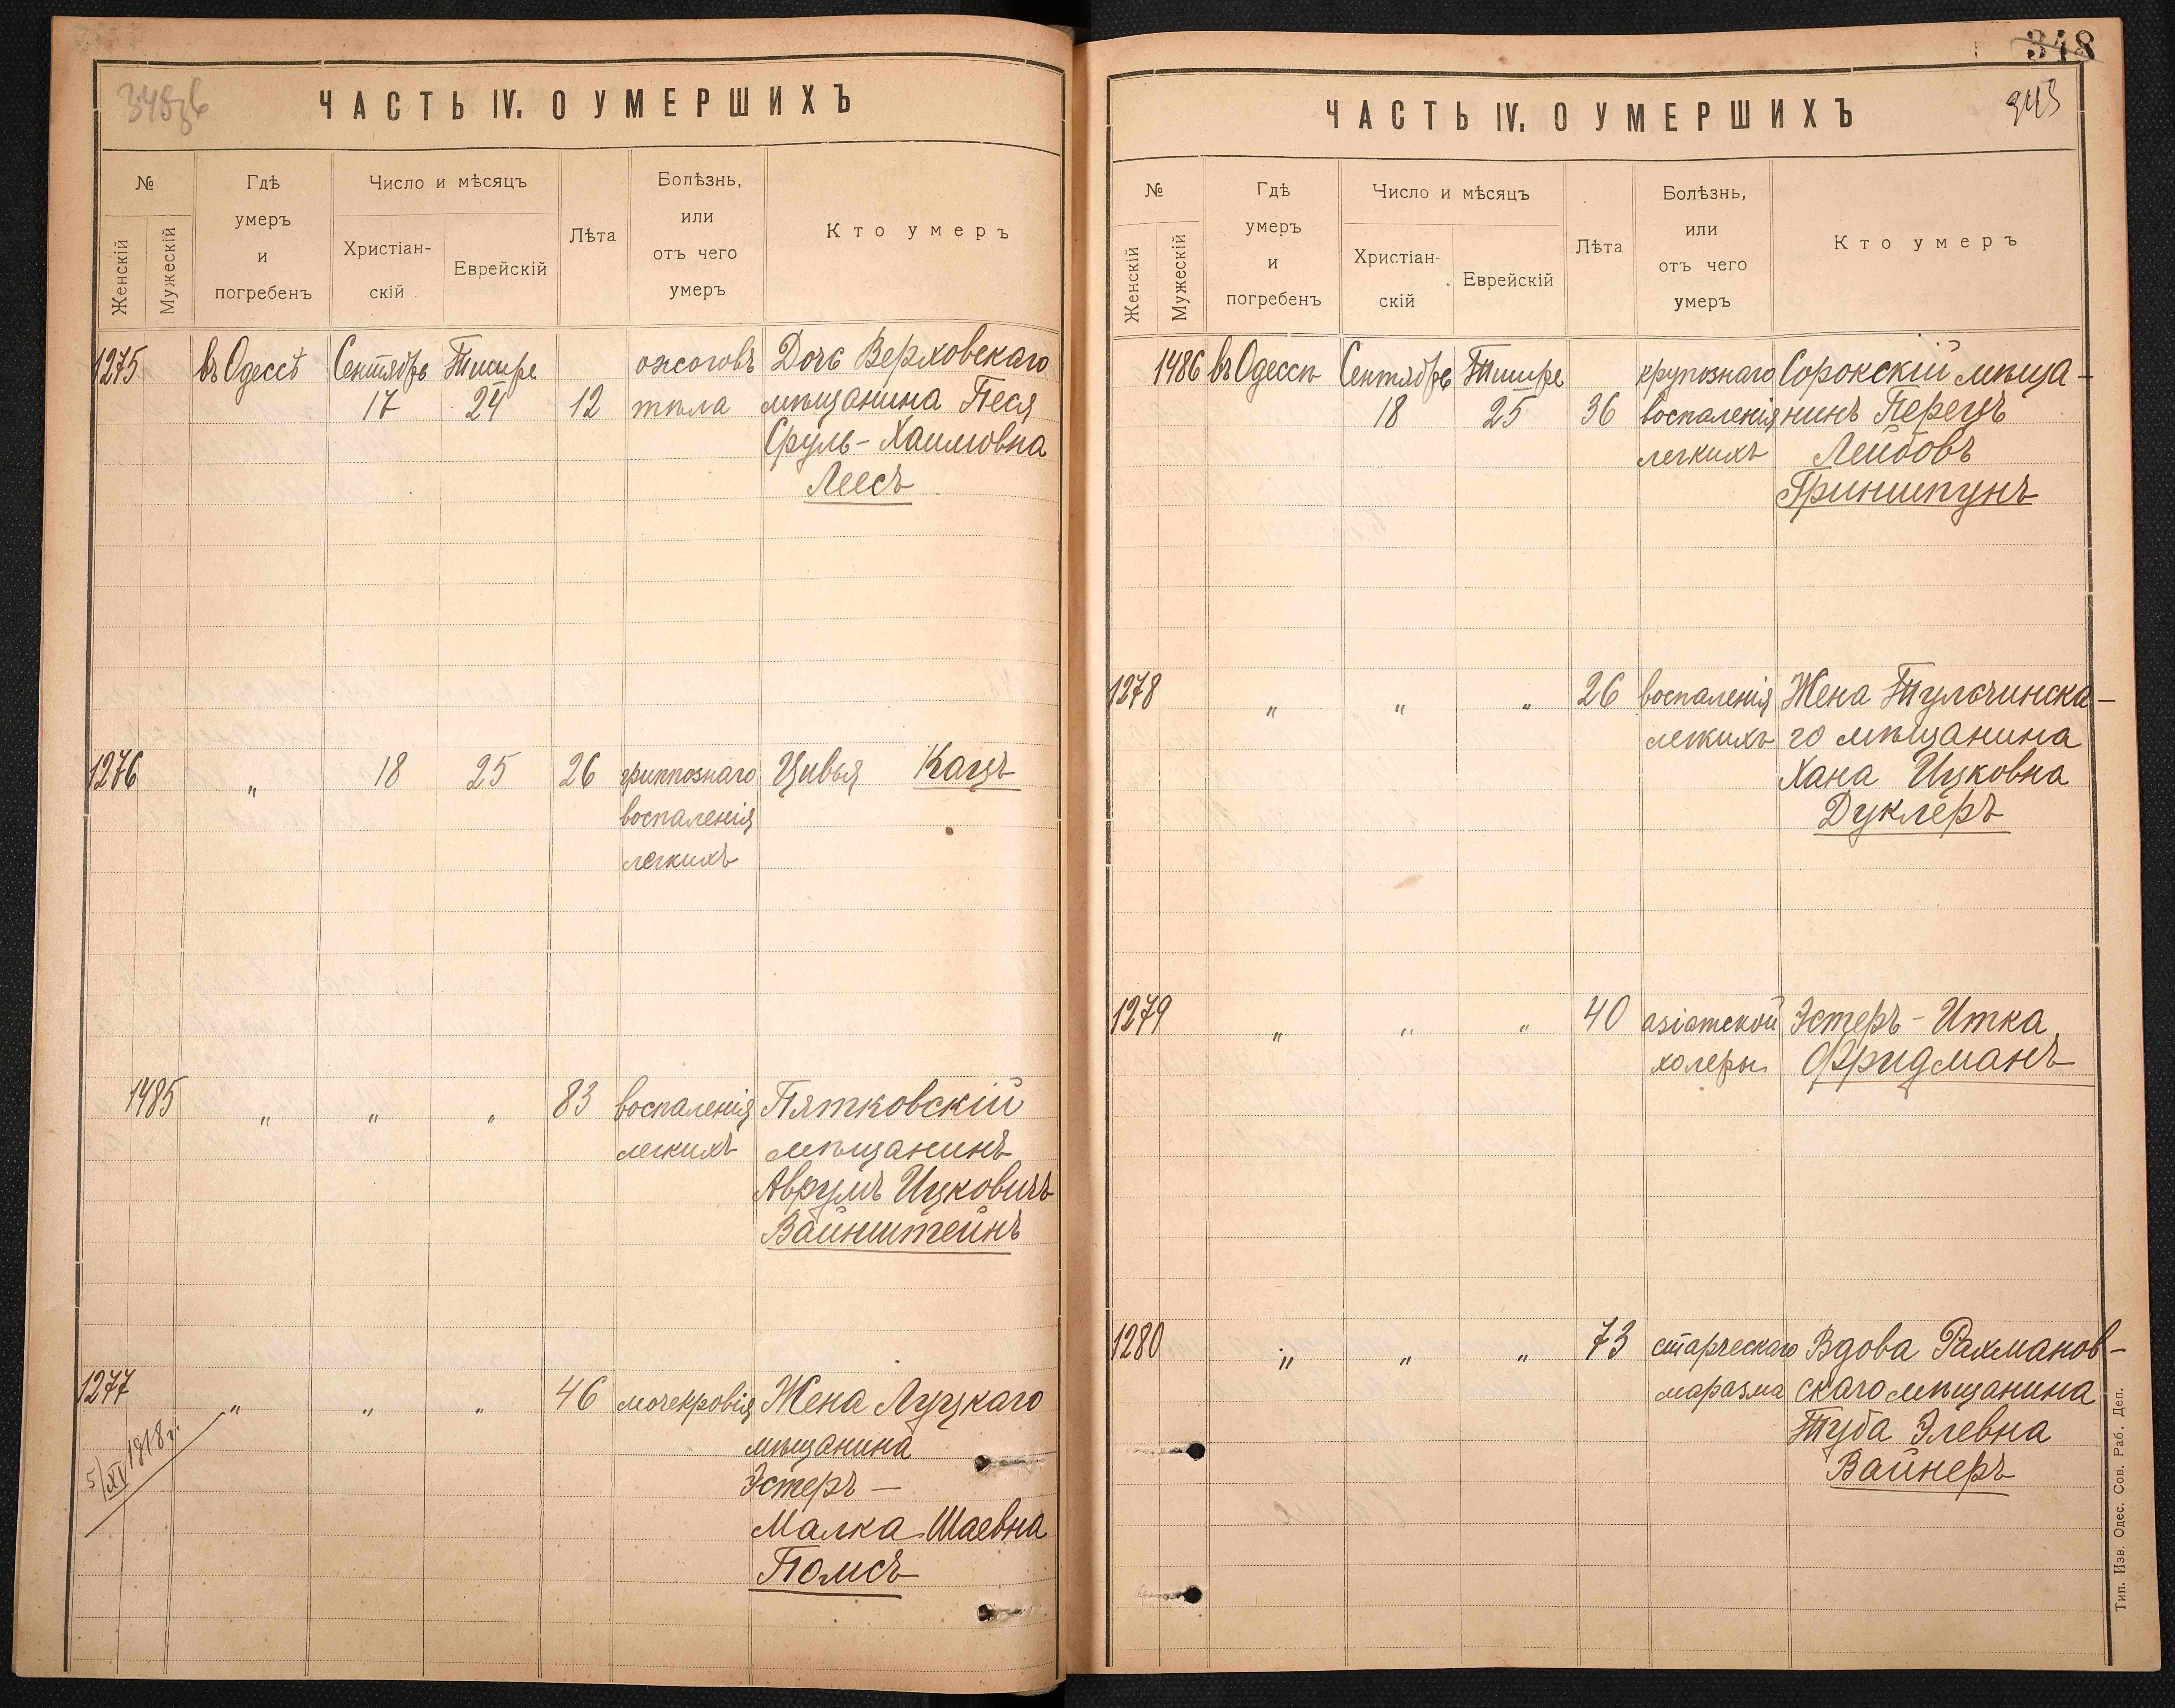 348
ЧАСТЬ IV. О УМЕРШИХЪ
№
Женскій
Мужескій
Гдѣ умеръ и погребенъ
Число и мѣсяцъ
Христіан-
скій
Еврейскій
Лѣта
Болѣзнь, или отъ чего умеръ
Кто умеръ
1275 въ Одессѣ Сентябрь Тишре ожоговъ Дочь Верховскаго
17 24 12 тѣла мѣщанина Песя
Сруль-Хаимовна
Леесъ
1276 " 18 25 26 гриппознаго Цивья Кацъ
воспаленія
легкихъ
1485 " " " 83 воспаленія Пятковскій
легкихъ мѣщанинъ
Аврумъ Ицковичъ
Вайнштейнъ
1277 " " " 46 мочекровія Жена Луцкаго
мѣщанина
Эстеръ-
Малка Шаевна
Помсъ
5/XI 1918 г.
ЧАСТЬ IV. О УМЕРШИХЪ
343
№
Женскій
Мужескій
Гдѣ умеръ и погребенъ
Число и мѣсяцъ
Христіан-
скій
Еврейскій
Лѣта
Болѣзнь, или отъ чего умеръ
Кто умеръ
1486 въ Одессѣ Сентябрь Тишре крупознаго Сорокскій мѣща-
18 25 36 воспаленія нинъ Перецъ
легкихъ Лейбовъ
Гриншпунъ
1278 " " " 26 воспаленія Жена Тульчинска-
легкихъ го мѣщанина
Хана Ицковна
Дуклеръ
1279 " " " 40 азіатской Эстеръ-Итка
холеры Фридманъ
1280 " " " 73 старческаго Вдова Рахманов-
маразма скаго мѣщанина
Туба Элевна
Вайнеръ
Тип. Изв. Одес. Сов. Раб. Деп.